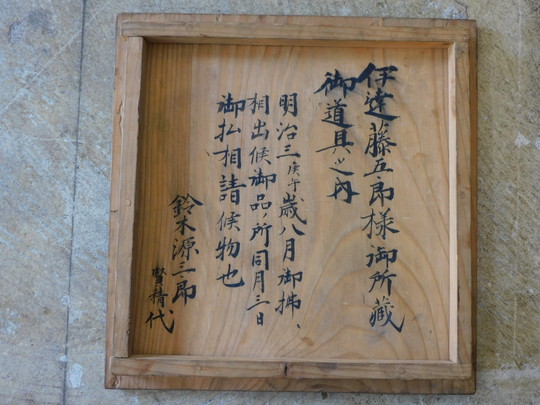 伊達藤五郎様御所蔵
御道具之内
明治三庚午歳八月御拂、
相出候御品、所同月三日
御払相請候物也
鈴木源三郎
賢精代